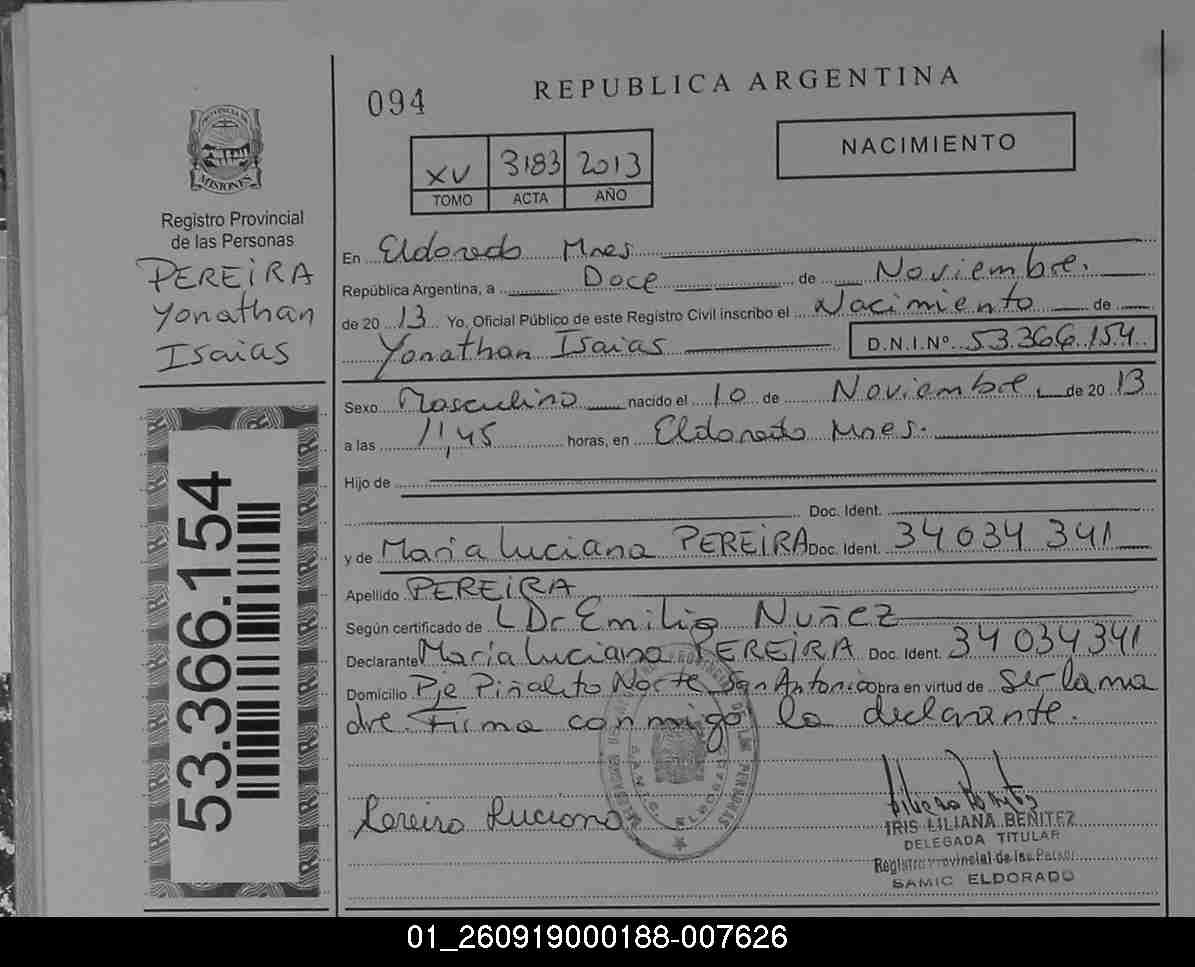 094
REPUBLICA ARGENTINA
NACIMIENTO
XV 3183 2013
TOMO ACTA AÑO
PROVINCIA DE
MISIONES
Registro Provincial
de las Personas
PEREIRA
Yonathan
Isaias
53.366.154
En Eldorado Mnes
República Argentina, a Doce de Noviembre.
de 20 13 Yo, Oficial Público de este Registro Civil inscribo el Nacimiento de
Yonathan Isaias D.N.I.Nº 53.366.154
Sexo Masculino nacido el 10 de Noviembre de 20 13
a las 11,45 horas, en Eldorado Mnes.
Hijo de
Doc. Ident.
y de Maria Luciana PEREIRA Doc. Ident. 34 034 341
Apellido PEREIRA
Según certificado de Dr Emilio NUÑEZ
Declarante Maria Luciana PEREIRA Doc. Ident. 34 034 341
Domicilio Pje Piñalito Norte San Antonio obra en virtud de ser la ma
dre. Firma conmigo la declarante.
Pereira Luciana
IRIS LILIANA BENITEZ
DELEGADA TITULAR
Registro Provincial de las Person
SAMIC ELDORADO
01_260919000188-007626